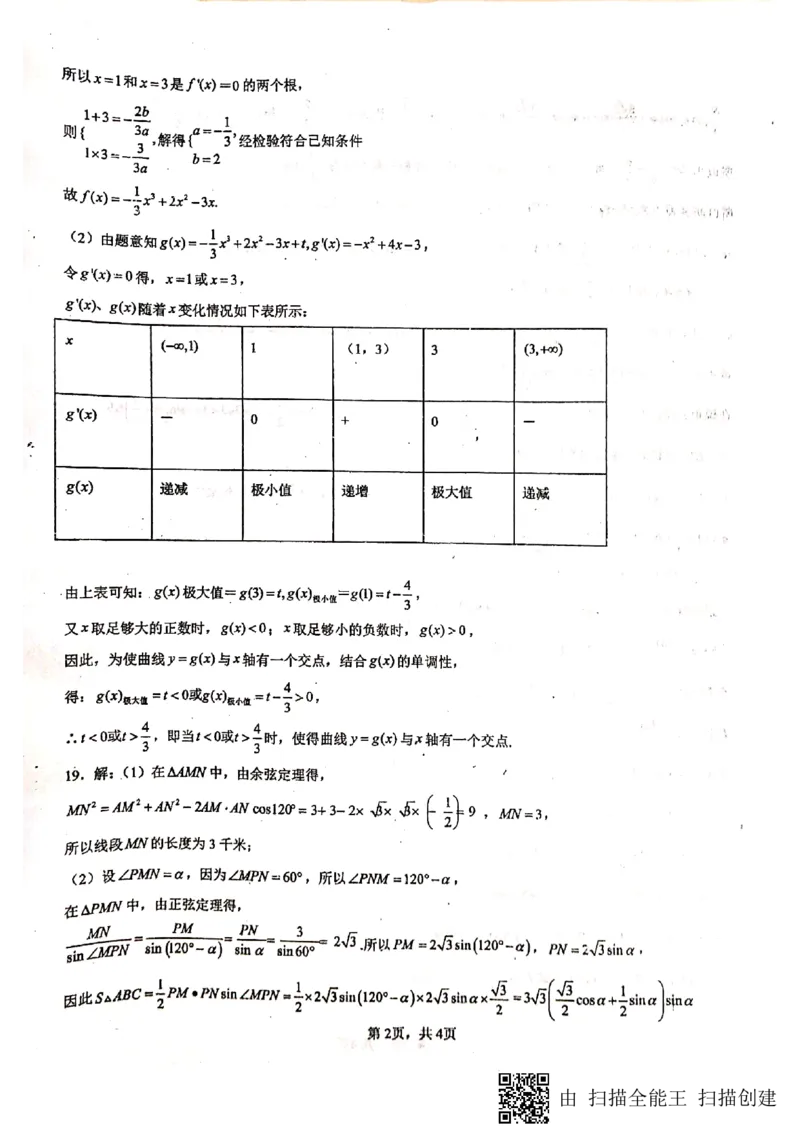 所以x=1和x=3是f'(x)=0的两个根，
则{1+3=-2b/3a, 1×3=-3/3a, 解得{a=-1/3, b=2 经检验符合已知条件
故f(x)=-1/3x³+2x²-3x.
（2）由题意知g(x)=-1/3x³+2x²-3x+t,g'(x)=-x²+4x-3，
令g'(x)=0得，x=1或x=3，
g'(x)、g(x)随着x变化情况如下表所示：
x (-∞,1) 1 （1，3） 3 (3,+∞)
g'(x) — 0 + 0 —
g(x) 递减 极小值 递增 极大值 递减
由上表可知：g(x)极大值=g(3)=t,g(x)极小值=g(1)=t-4/3，
又x取足够大的正数时，g(x)<0；x取足够小的负数时，g(x)>0，
因此，为使曲线y=g(x)与x轴有一个交点，结合g(x)的单调性，
得：g(x)极大值=t<0或g(x)极小值=t-4/3>0，
∴t<0或t>4/3，即当t<0或t>4/3时，使得曲线y=g(x)与x轴有一个交点.
19. 解：（1）在△AMN中，由余弦定理得，
MN²=AM²+AN²-2AM·AN cos120°=3+3-2×√3×√3×(-1/2)=9，MN=3，
所以线段MN的长度为3千米；
（2）设∠PMN=α，因为∠MPN=60°，所以∠PNM=120°-α，
在△PMN中，由正弦定理得，
MN/sin∠MPN=PM/sin(120°-α)=PN/sinα=3/sin60°=2√3.所以PM=2√3sin(120°-α)，PN=2√3sinα，
因此S△ABC=1/2PM•PNsin∠MPN=1/2×2√3sin(120°-α)×2√3sinα×√3/2=3√3(√3/2cosα+1/2sinα)sinα
第2页，共4页
由 扫描全能王 扫描创建